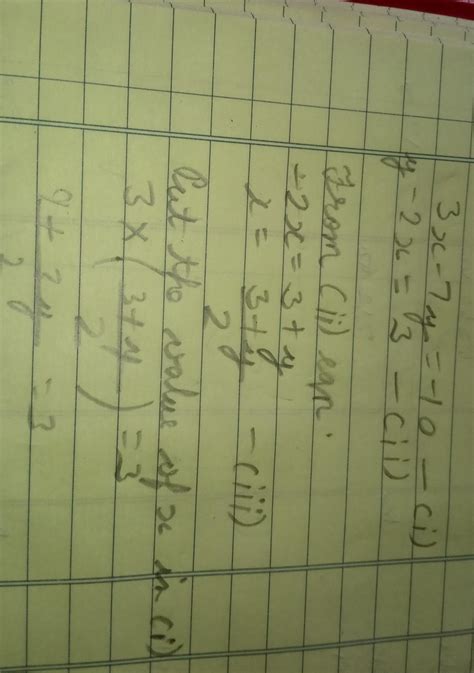 3x-7y=-10 - (i)
y-2x=3 - (ii)
From (ii) eqn.
-2x=3+y
x = 3+y/2 - (iii)
Put the value of x in (i)
3 × (3+y/2) = 3
9+7y/2 = 3